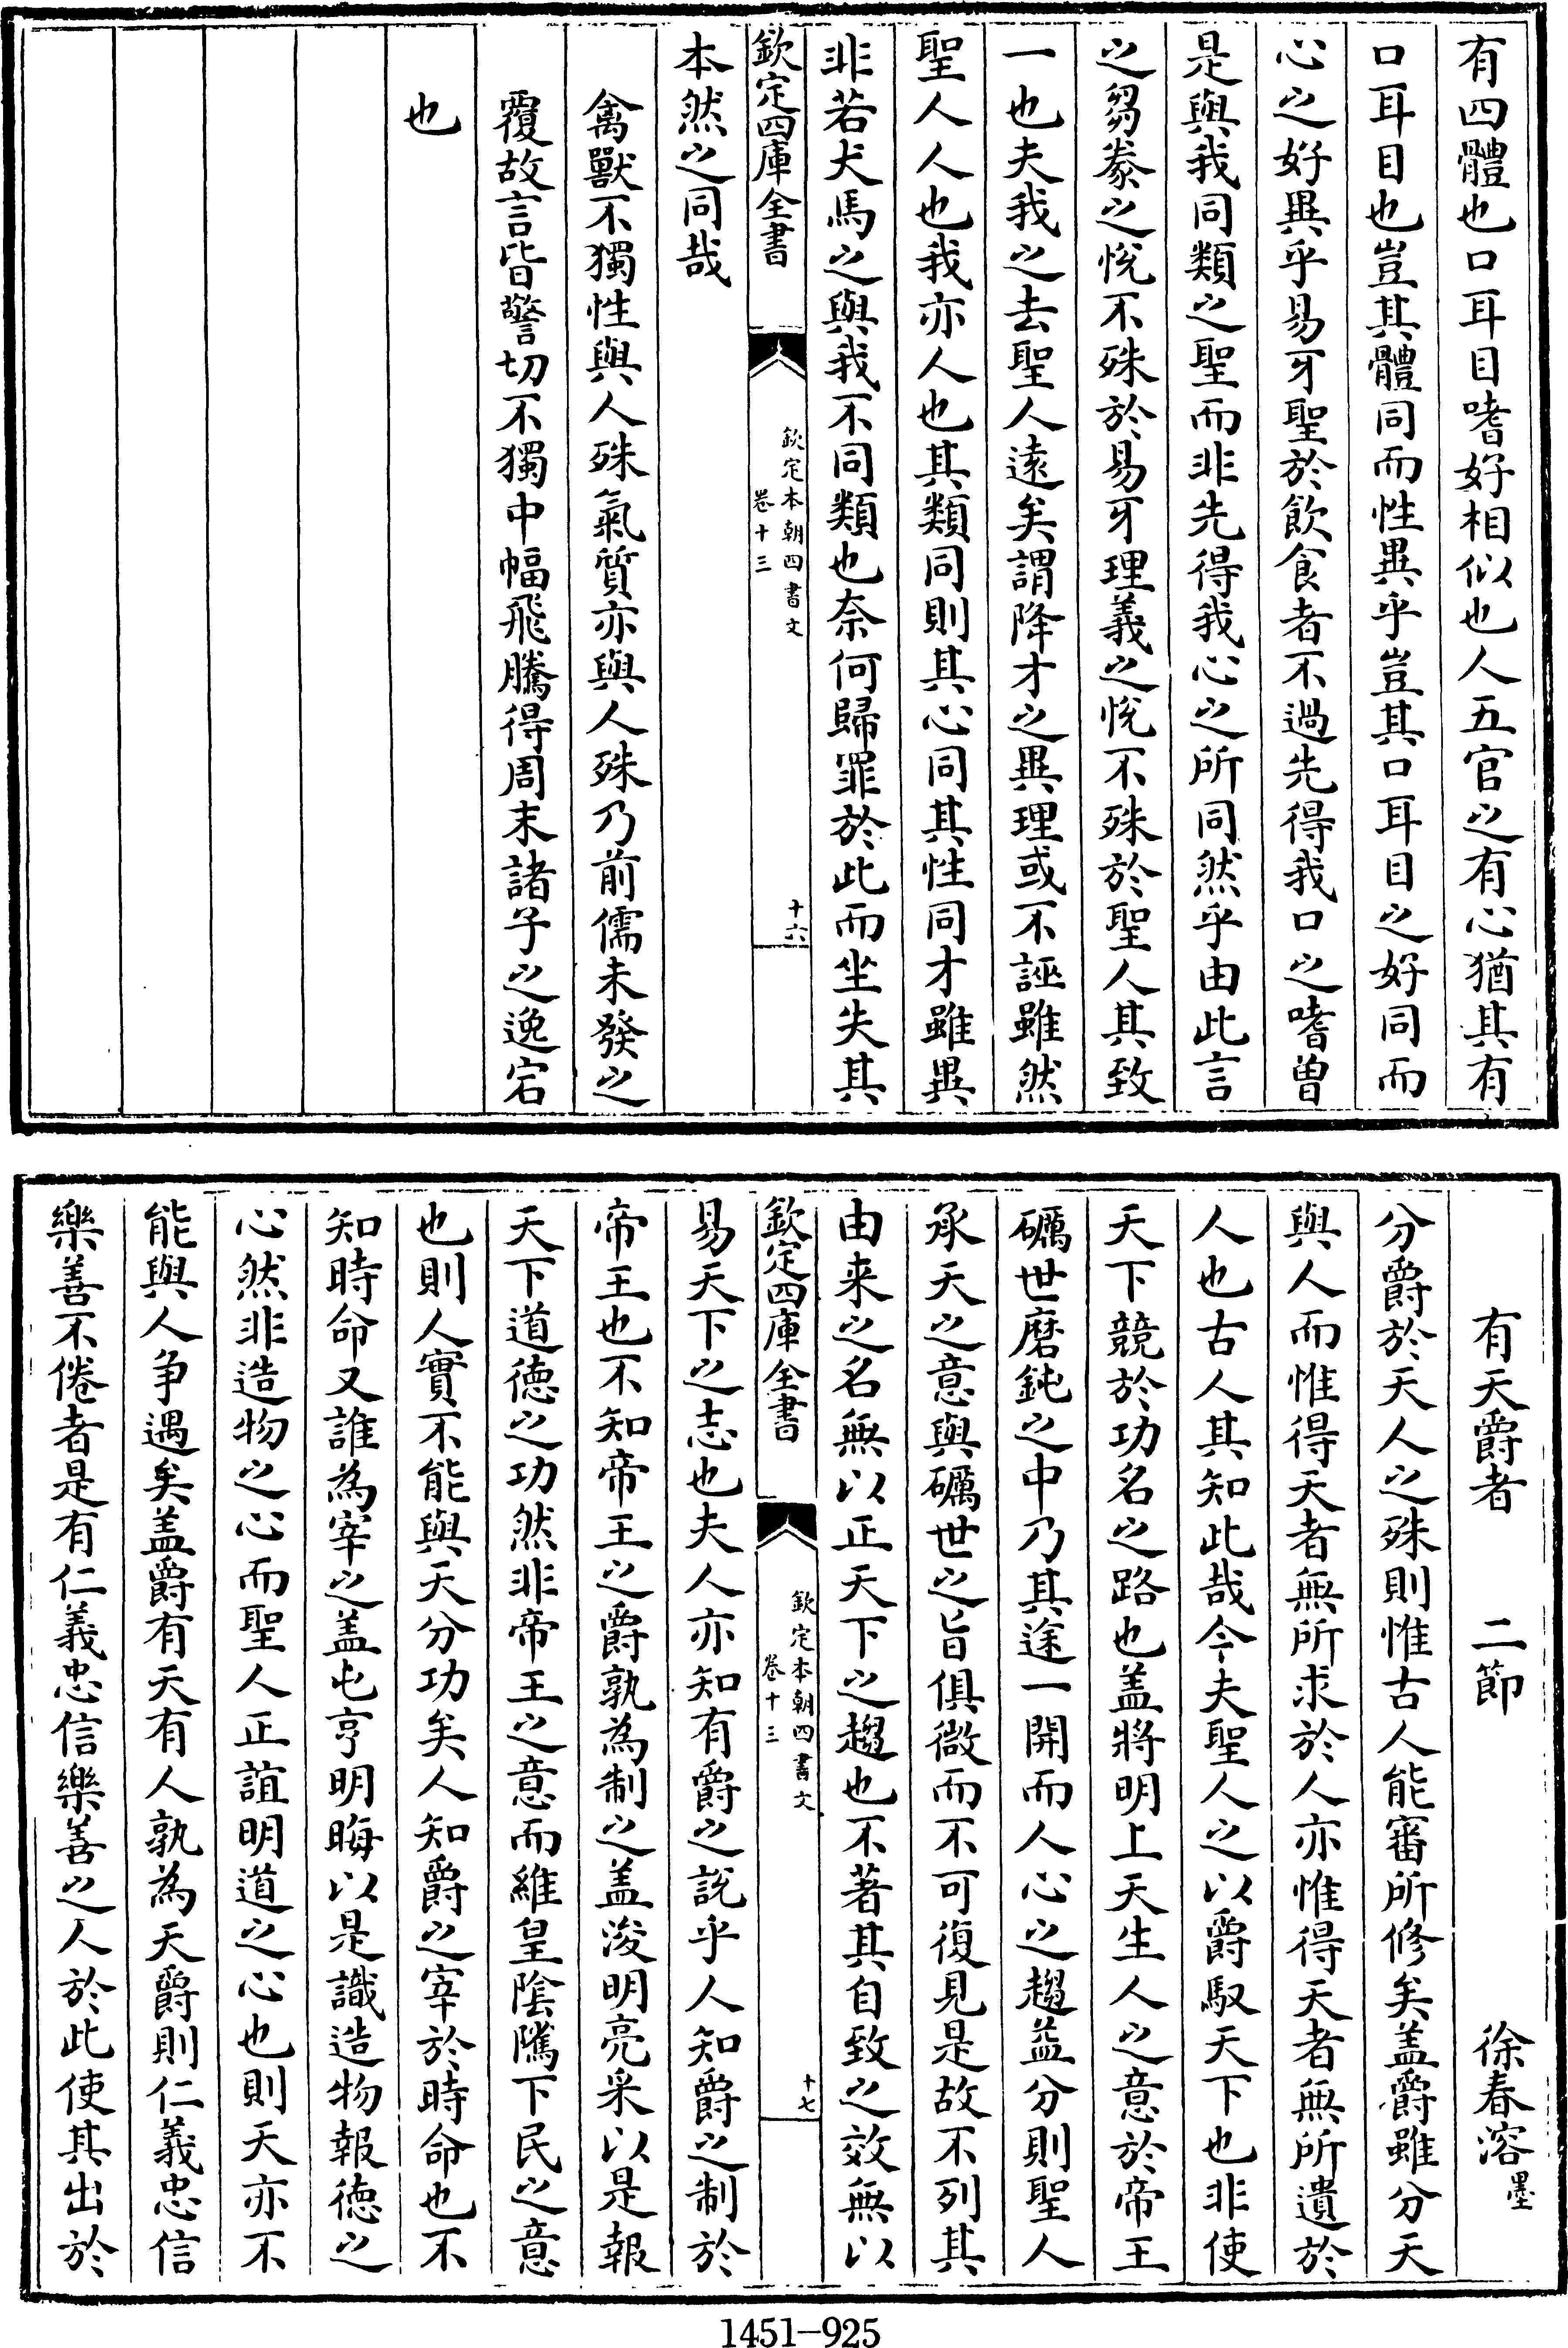 有四體也口耳目嗜好相似也人五官之有心猶其有
口耳目也豈其體同而性異乎豈其口耳目之好同而
心之好異乎易牙聖於飲食者不過先得我口之嗜曽
是與我同類之聖而非先得我心之所同然乎由此言
之芻豢之悅不殊於易牙理義之悅不殊於聖人其致
一也夫我之去聖人逺矣謂降才之異理或不誣雖然
聖人人也我亦人也其類同則其心同其性同才雖異
非若犬馬之與我不同類也奈何歸罪於此而坐失其
欽定四庫全書
欽定本朝四書文
卷十三
十六
本然之同哉
禽獸不獨性與人殊氣質亦與人殊乃前儒未發之
覆故言皆警切不獨中幅飛騰得周末諸子之逸宕
也
有天爵者 二節 徐春溶墨
分爵於天人之殊則惟古人能審所修矣盖爵雖分天
與人而惟得天者無所求於人亦惟得天者無所遺於
人也古人其知此哉今夫聖人之以爵馭天下也非使
天下競於功名之路也盖將明上天生人之意於帝王
礪世磨鈍之中乃其途一開而人心之趨益分則聖人
承天之意與礪世之旨俱微而不可復見是故不列其
由来之名無以正天下之趨也不著其自致之效無以
欽定四庫全書
欽定本朝四書文
卷十三
十七
易天下之志也夫人亦知有爵之說乎人知爵之制於
帝王也不知帝王之爵孰為制之盖浚明亮采以是報
天下道徳之功然非帝王之意而維皇陰隲下民之意
也則人實不能與天分功矣人知爵之宰於時命也不
知時命又誰為宰之盖屯亨明晦以是識造物報徳之
心然非造物之心而聖人正誼明道之心也則天亦不
能與人争遇矣盖爵有天有人孰為天爵則仁義忠信
樂善不倦者是有仁義忠信樂善之人於此使其出於
1451-925